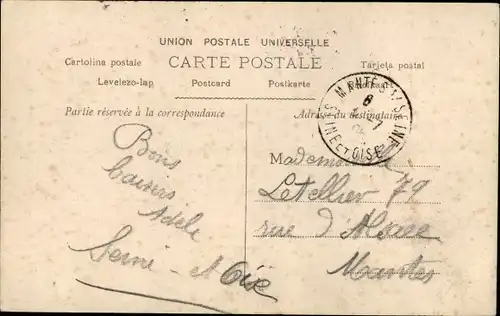 UNION POSTALE UNIVERSELLE
CARTE POSTALE
Cartolina postale
Tarjeta postal
Levelezo-lap
Postcard
Postkarte
MANTES S/ SEINE
6
7
SEINE ET OISE
Partie réservée à la correspondance
Adresse du destinataire
Bons
baisers
Adèle
Seine-et Oise
Letellier 79
rue d'Alsace
Mantes